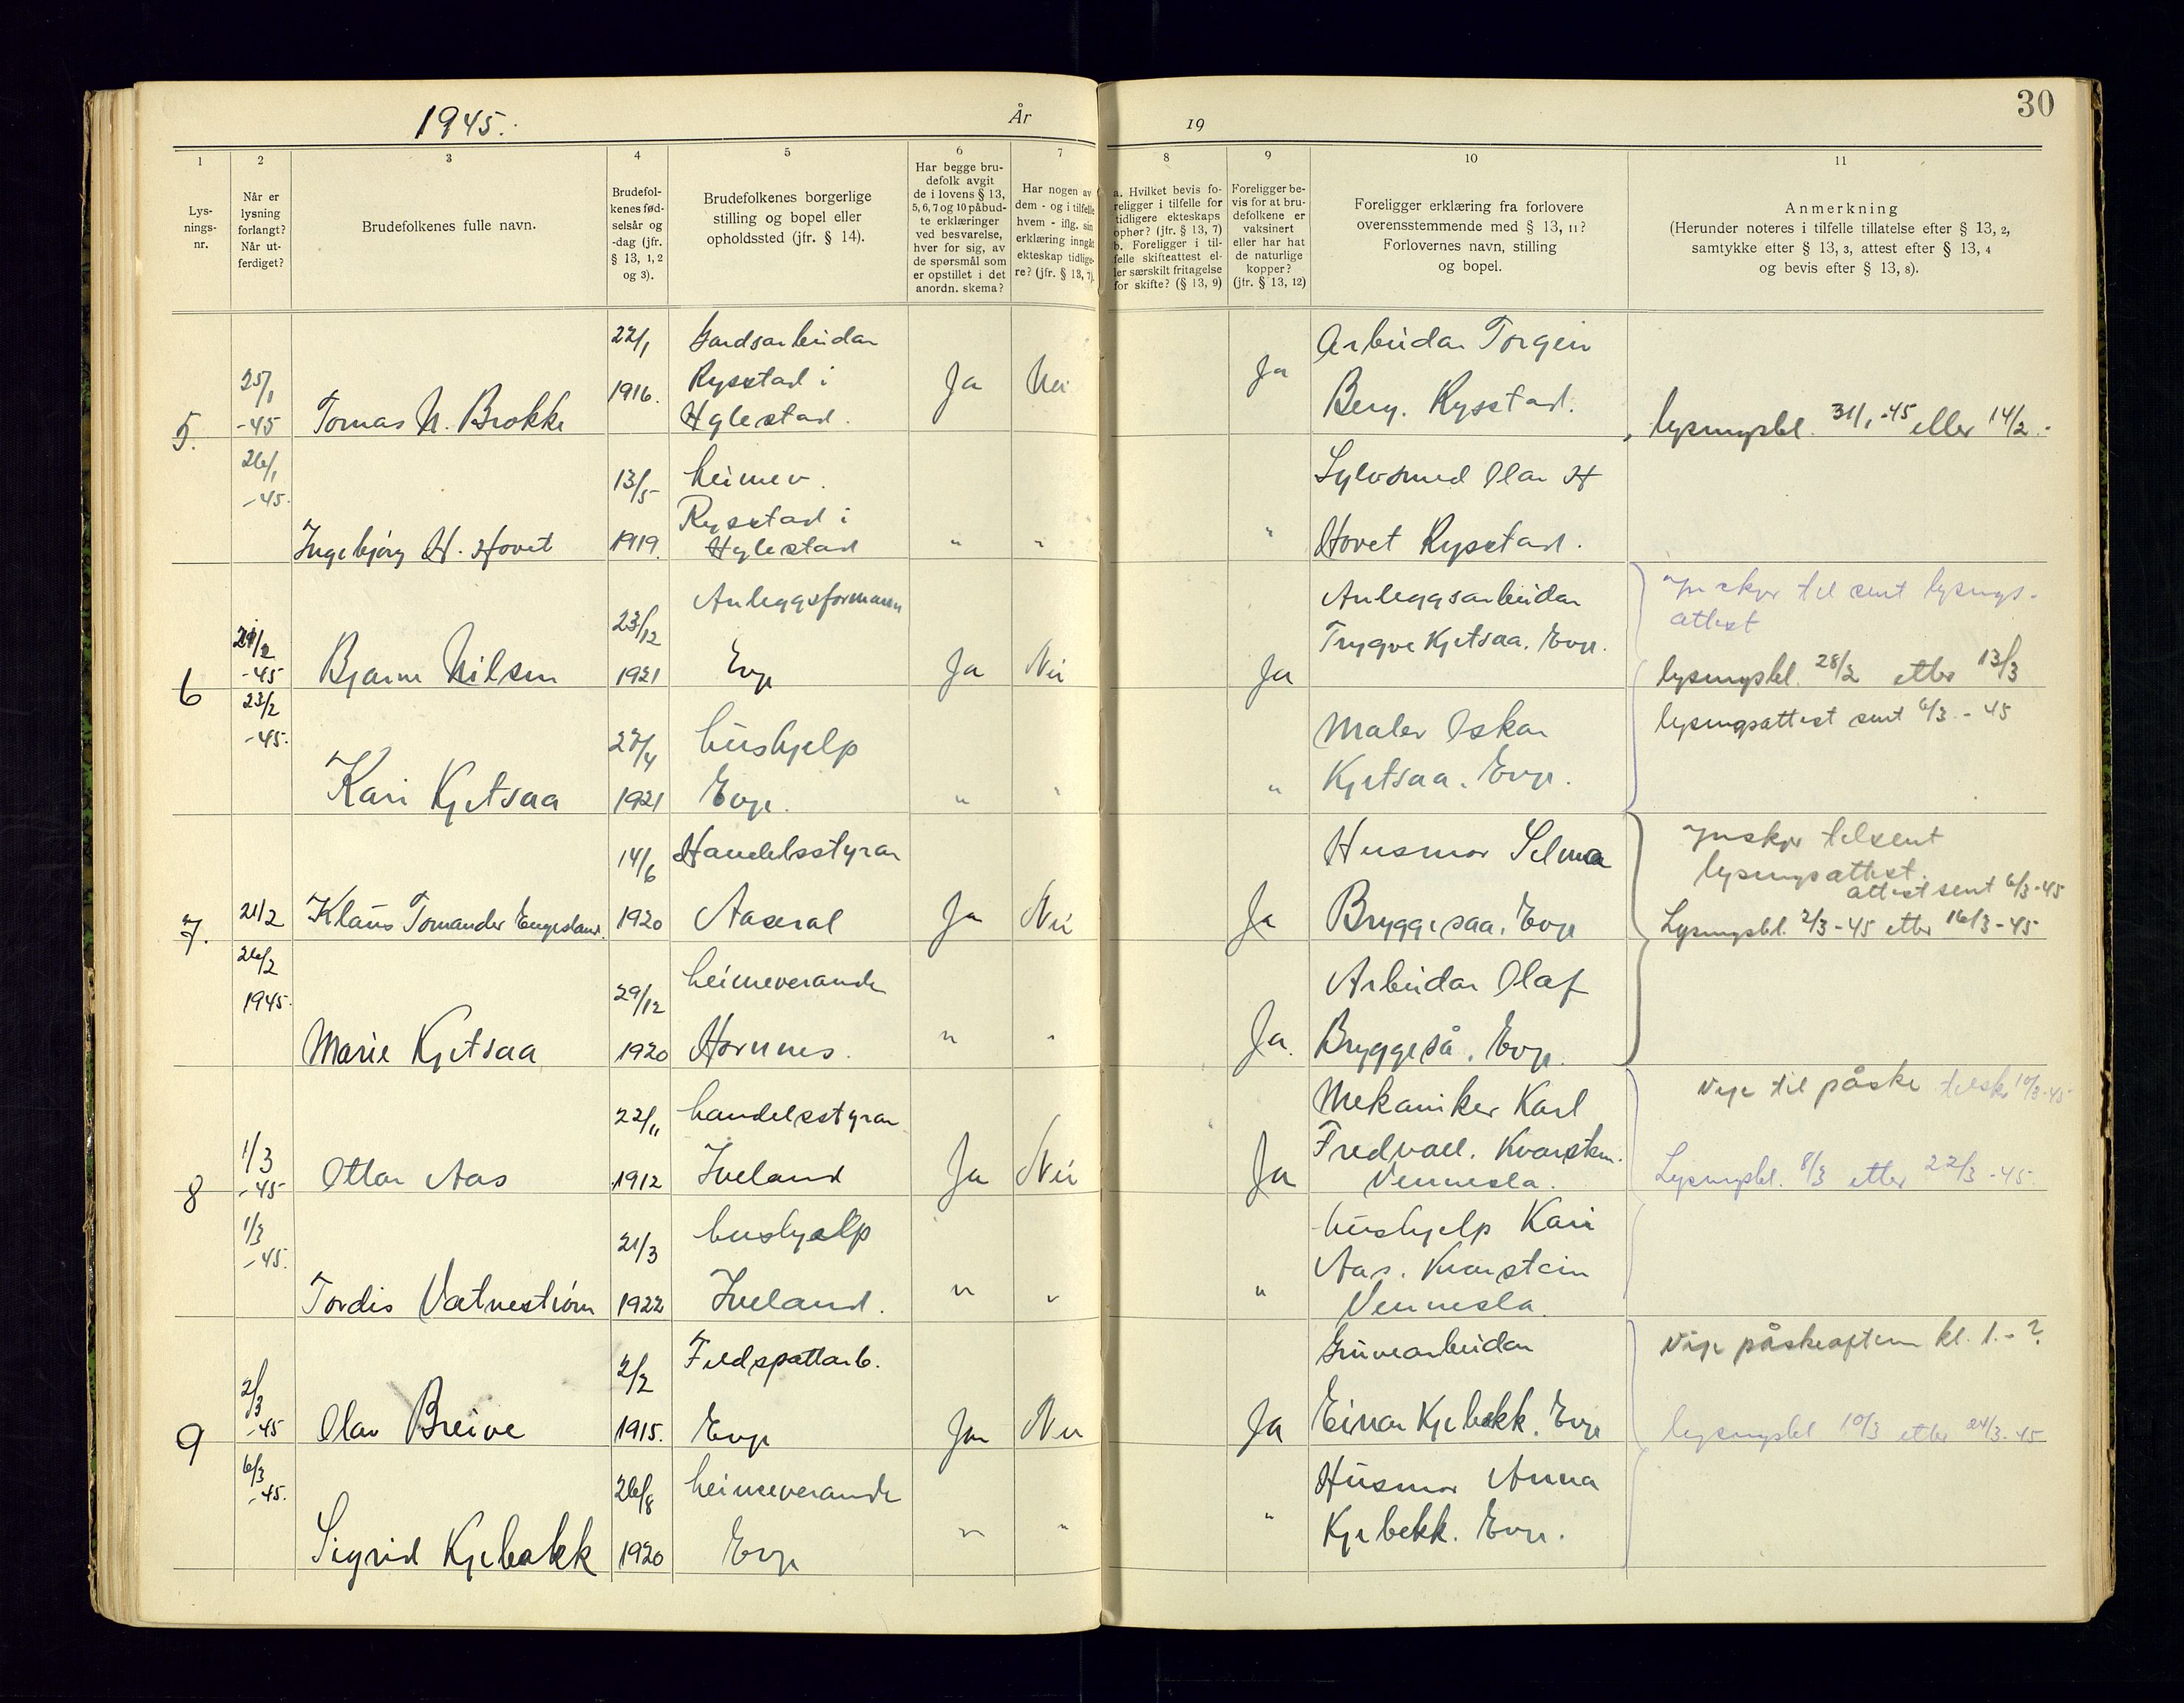 1945.
År
19
30
1
2
3
4
5
6
7
8
9
10
11
Lys-
nings-
nr.
Når er
lysning
forlangt?
Når ut-
ferdiget?
Brudefolkenes fulle navn.
Brudefol-
kenes fød-
selsår og
-dag (jfr.
§ 13, 1, 2
og 3).
Brudefolkenes borgerlige
stilling og bopel eller
opholdssted (jfr. § 14).
Har begge bru-
defolk avgit
de i lovens § 13,
5, 6, 7 og 10 påbud-
te erklæringer
ved besvarelse,
hver for sig, av
de spørsmål som
er opstillet i det
anordn. skema?
Har nogen av
dem - og i tilfelle
hvem - iflg. sin
erklæring inngått
ekteskap tidlige-
re? (jfr. § 13, 7).
a. Hvilket bevis fo-
religger i tilfelle for
tidligere ekteskaps
ophør? (jfr. § 13, 7)
b. Foreligger i til-
felle skifteattest el-
ler særskilt fritagelse
for skifte? (§ 13, 9)
Foreligger be-
vis for at bru-
defolkene er
vaksinert
eller har hat
de naturlige
kopper?
(jfr. § 13, 12)
Foreligger erklæring fra forlovere
overensstemmende med § 13, 11?
Forlovernes navn, stilling
og bopel.
Anmerkning
(Herunder noteres i tilfelle tillatelse efter § 13, 2,
samtykke efter § 13, 3, attest efter § 13, 4
og bevis efter § 13, 8).
5.
25/1
-45
26/1
-45.
Tomas N. Brokke
22/1
1916.
Gardsarbeidar
Rysstad i
Hylestad.
Ja
Nei
Ja
Arbeidar Torgeir
Berg. Rysstad.
lysingsbl. 31/1-45 eller 14/2.-
Ingebjørg H. Hovet
13/5
1919.
heimev.
Rysstad i
Hylestad
"
"
"
Sylvsmed Olav H
Hovet Rysstad.
6
21/2
-45
23/2
-45.
Bjarne Nilsen
23/12
1921
Anleggsformann
Evje
Ja
Nei
Ja
Anleggsarbeidar
Trygve Kjetsaa. Evje.
ynskjer tilsent lysings-
attest
lysingsbl. 28/2 etter 13/3
lysingsattest sent 6/3 - 45
Kari Kjetsaa
27/4
1921
hushjelp
Evje.
"
"
"
Maler Oskar
Kjetsaa. Evje.
7.
21/2
26/2
1945.
Klaus Tomander Engesland.
14/6
1920
Handelsstyrar
Aaseral
Ja
Nei
Ja
Husmor Selma
Bryggesaa. Evje
ynskjer tilsent
lysingsattest.
attest sent 6/3-45
Lysingsbl. 2/3-45 etter 16/3-45
Marie Kjetsaa
29/12
1920
heimeverande
Hornnes.
"
"
Ja.
Arbeidar Olaf
Bryggeså. Evje.
8
1/3
-45
1/3
-45.
Ottar Aas
22/11
1912
handelsstyrar
Iveland
Ja
Nei
Ja
Mekaniker Karl
Fredvall. Kvarstein.
Vennesla.
Vige til påske tilsk. 10/3-45
Lysingsbl. 8/3 etter 22/3-45.
Tordis Vatnestrøm
21/3
1922
hushjelp
Iveland.
"
"
"
hushjelp Kari
Aas. Kvarstein
Vennesla.
9
2/3
-45
6/3
-45.
Olav Breive
2/2
1915.
Feldspattarb.
Evje
Ja
Nei
Ja
Gruvearbeidar
Einar Kjebekk. Evje
Vige påskeaftem kl. 1.- ?
lysingsbl 10/3 etter 24/3-45
Sigrid Kjebekk
26/8
1920
heimeverande
Evje
"
"
"
Husmor Anna
Kjebekk. Evje.